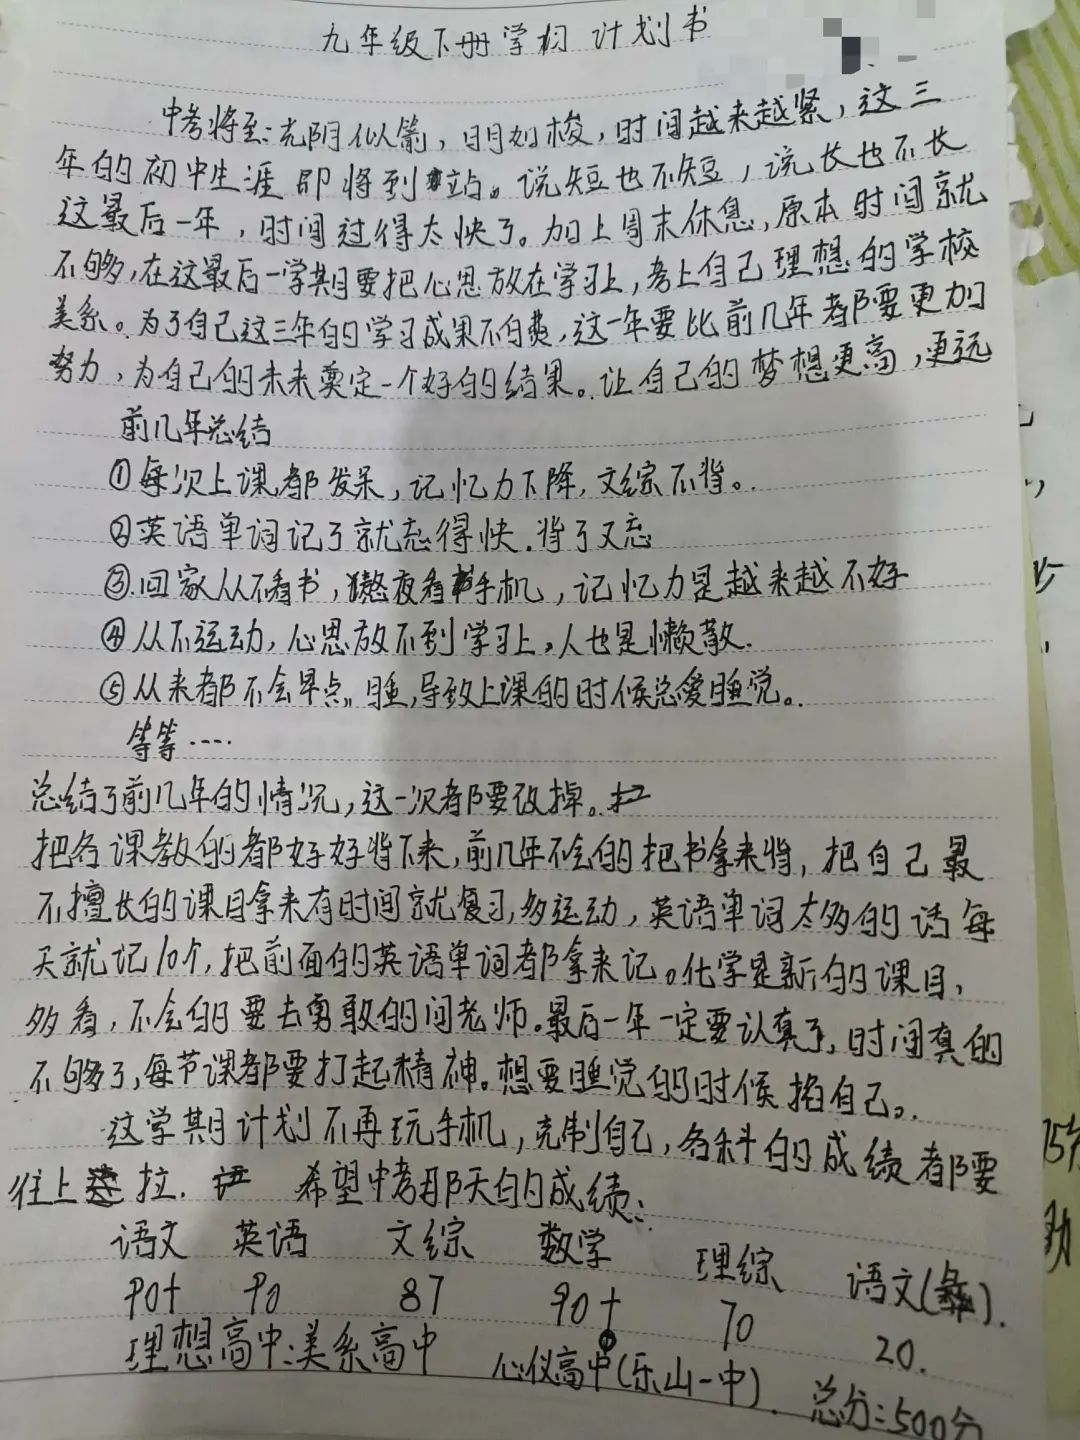 九年级下册学习计划书
中考将至:光阴似箭，日月如梭，时间越来越紧，这三
年的初中生涯即将到站。说短也不短，说长也不长
这最后一年，时间过得太快了。加上周末休息，原本时间就
不够，在这最后一学期要把心思放在学习上，考上自己理想的学校
美系。为了自己这三年的学习成果不白费，这一年要比前几年都要更加
努力，为自己的未来奠定一个好的结果。让自己的梦想更高，更远
前几年总结
①每次上课都发呆，记忆力下降，文综不背。
②英语单词记了就忘得快.背了又忘
③.回家从不看书，熬夜看手机，记忆力是越来越不好
④从不运动，心思放不到学习上，人也是懒散.
⑤从来都不会早点睡,导致上课的时候总爱睡觉。
等等....
总结了前几年的情况，这一次都要改掉。
把各课教的都好好背下来，前几年不会的把书拿来背，把自己最
不擅长的课目拿来有时间就复习，多运动，英语单词太多的话每
天就记10个，把前面的英语单词都拿来记。化学是新的课目，
多看，不会的要去勇敢的问老师。最后一年一定要认真了，时间真的
不够了，每节课都要打起精神。想要睡觉的时候掐自己。
这学期计划不再玩手机，克制自己，各科的成绩都要
往上拉. 希望中考那天的成绩:
语文 英语 文综 数学 理综 语文(彝).
90+ 90 87 90+ 70 20.
理想高中:美系高中 心仪高中(乐山一中). 总分:500分